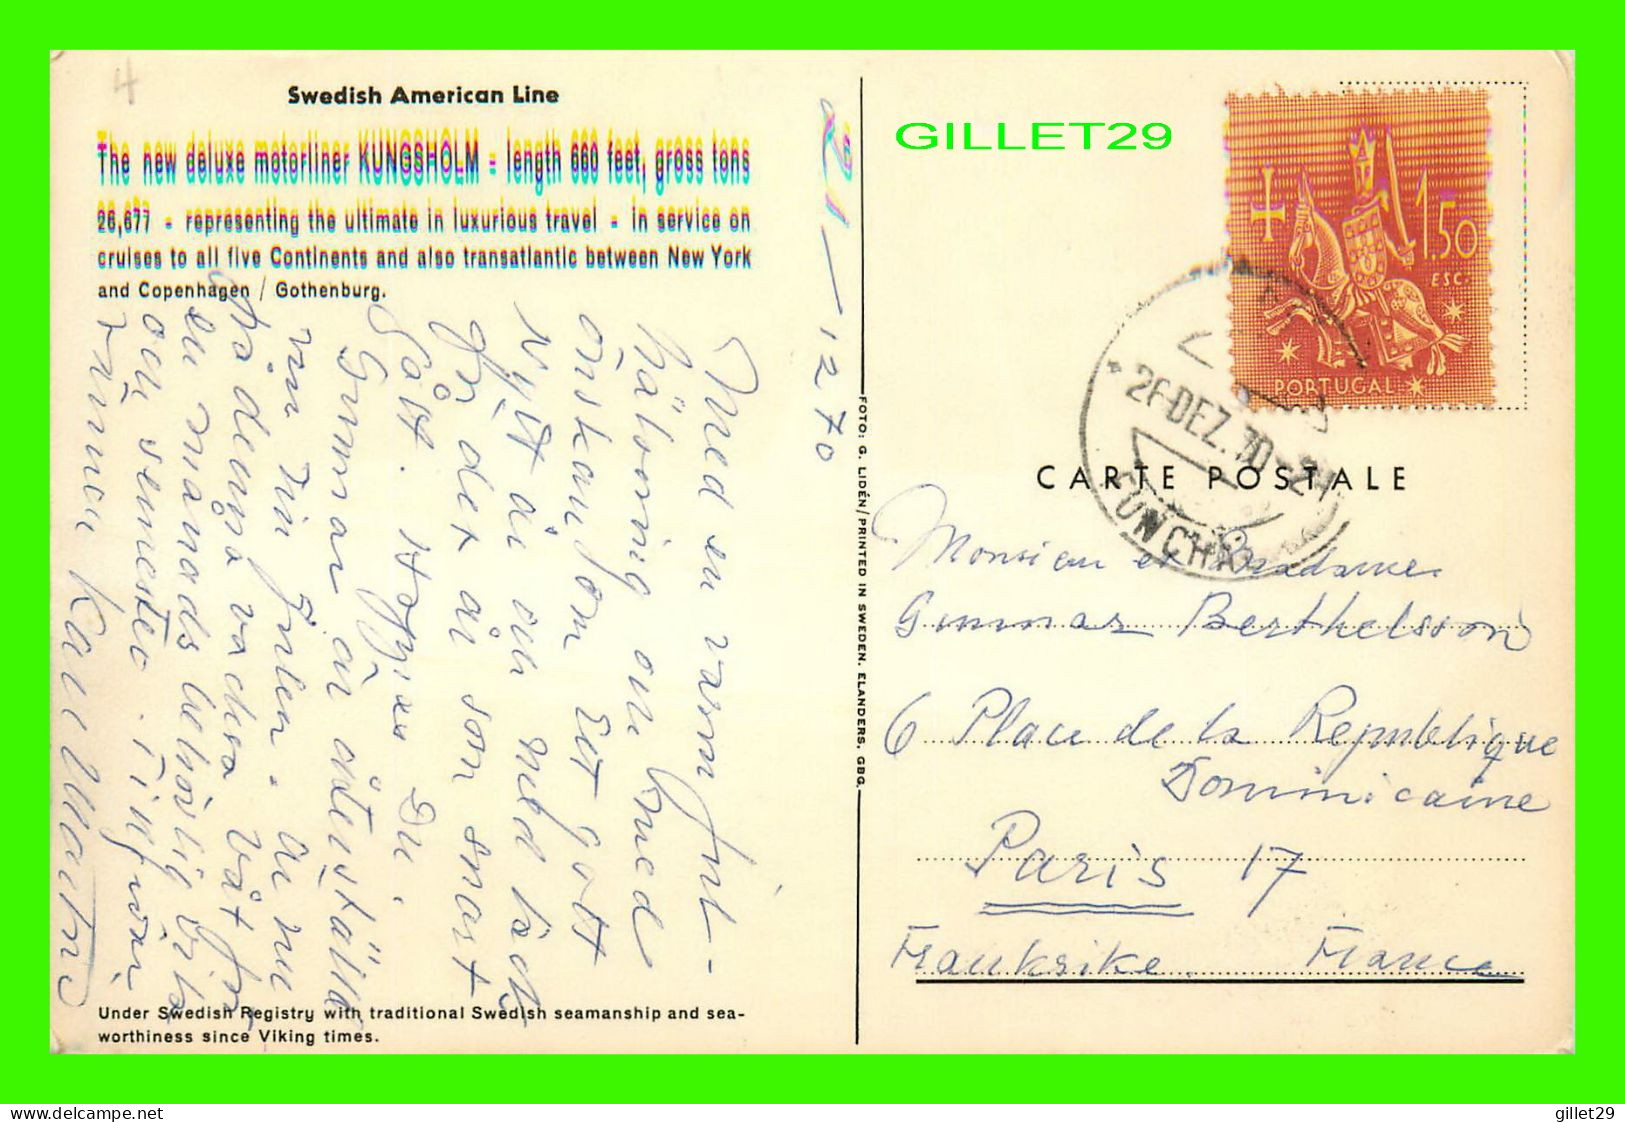 4
Swedish American Line
The new deluxe motorliner KUNGSHOLM - length 660 feet, gross tons
26,677 - representing the ultimate in luxurious travel - in service on
cruises to all five Continents and also transatlantic between New York
and Copenhagen / Gothenburg.
21 — 12 70
Med en varm jul-
hälsning om med
önskan om Ett gott
Nytt år och med tack
för det år som snart
Gått. Hoppas Du.
Gunnar är återställd
från denna
en månads behövlig
och semester.
Under Swedish Registry with traditional Swedish seamanship and sea-
worthiness since Viking times.
FOTO: G. LIDÉN/PRINTED IN SWEDEN. ELANDERS, GBG.
GILLET29
1.50
ESC.
PORTUGAL
26.DEZ.70-21
FUNCHAL
CARTE POSTALE
Monsieur et Madame
Gunnar Berthelsson
6 Place de la Republique
Dominicaine
Paris 17
Frankrike. France
delcampe.net
gillet29